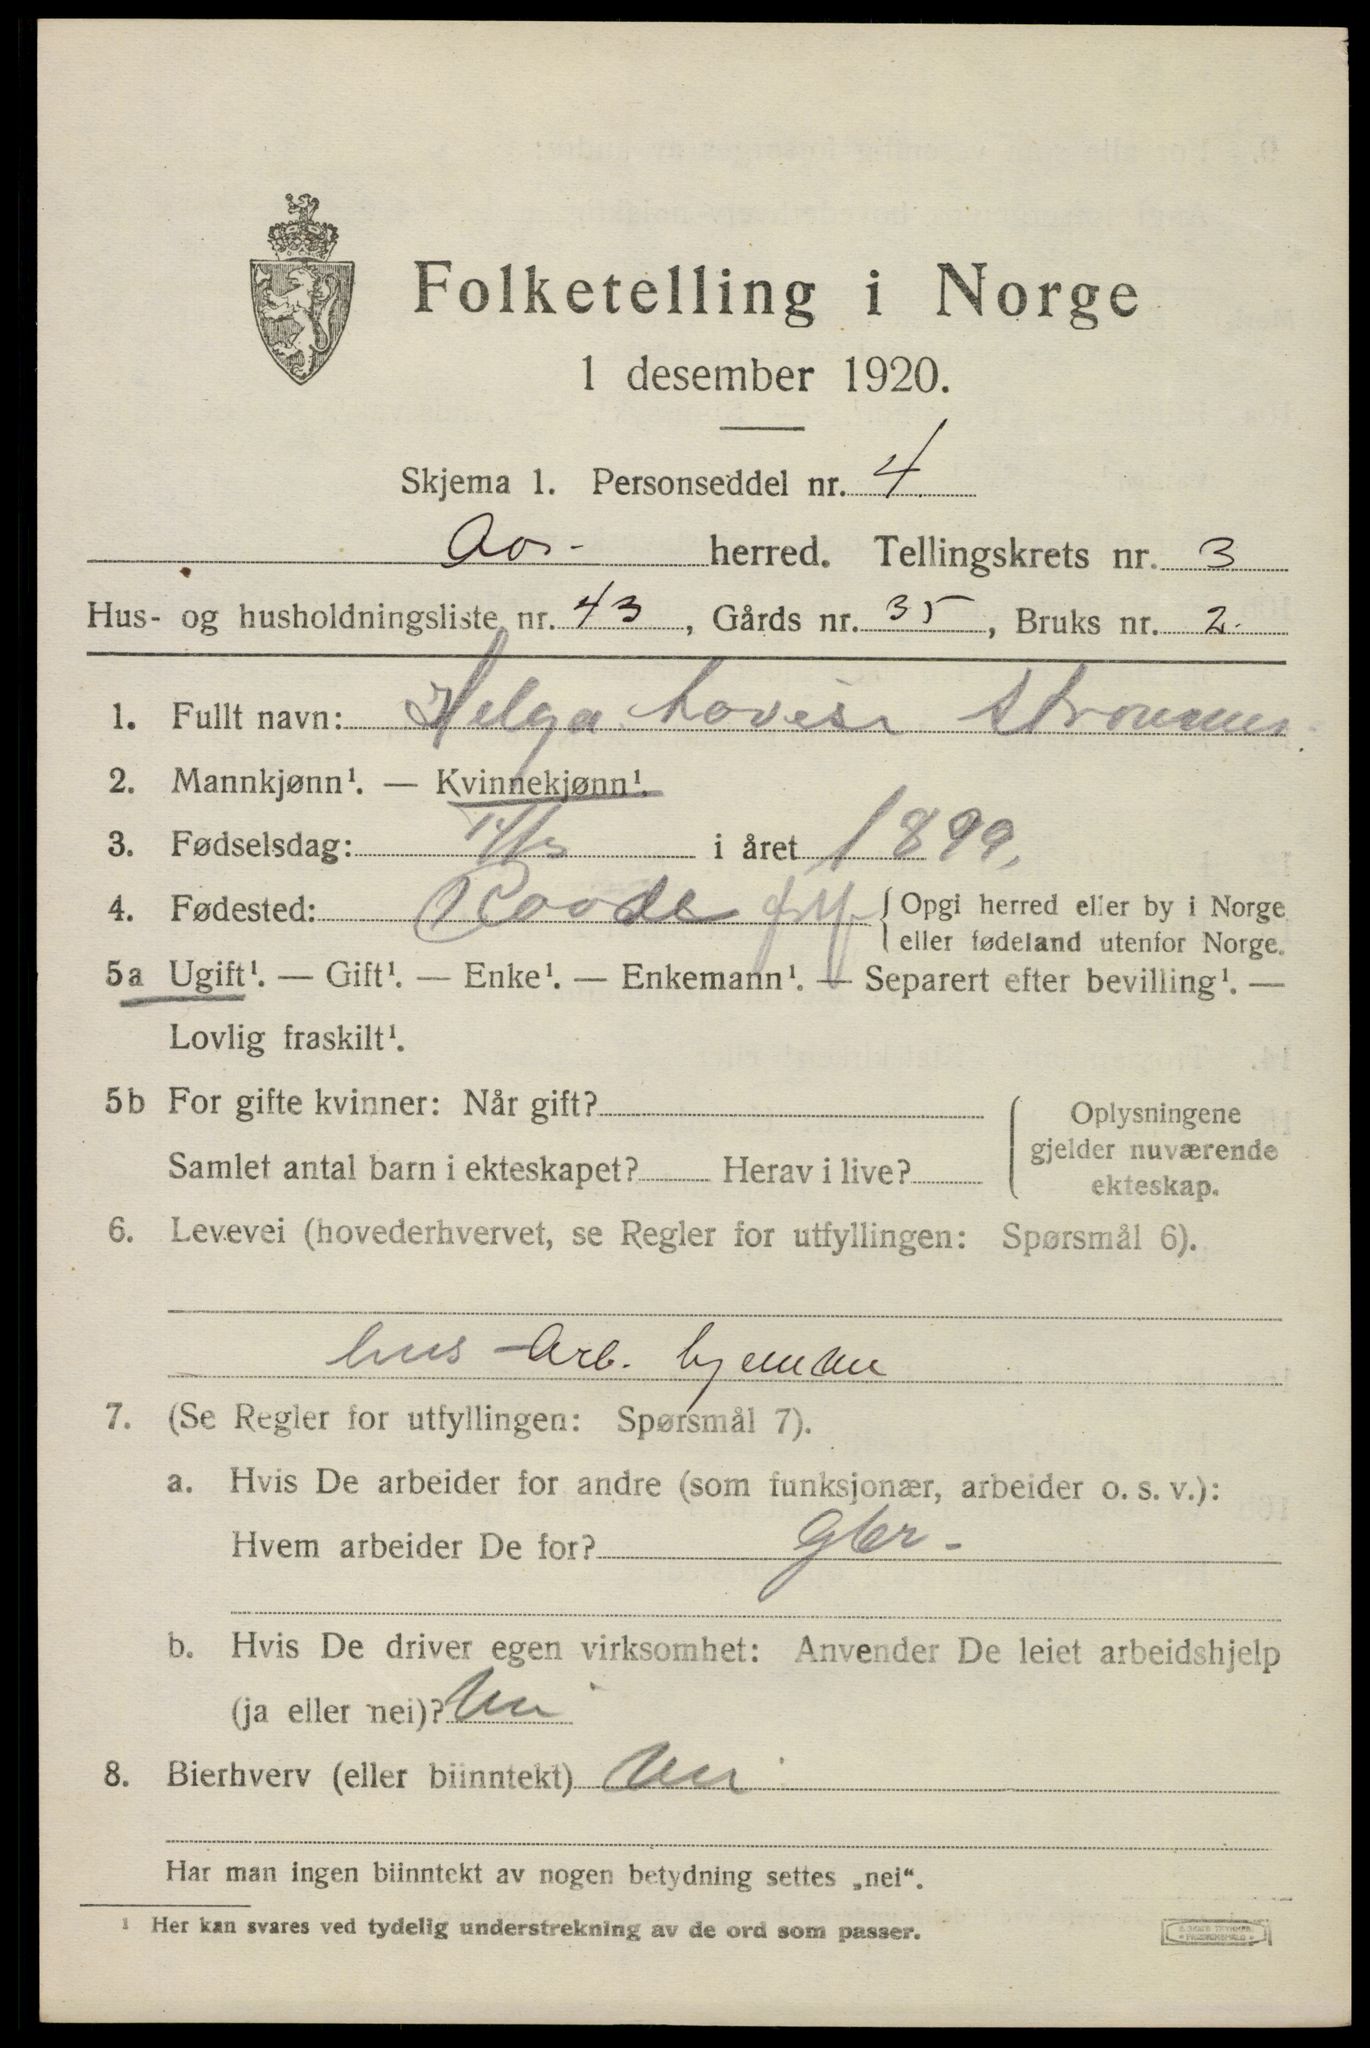 Folketelling i Norge
1 desember 1920.
Skjema 1. Personseddel nr. 4
Aas - herred. Tellingskrets nr. 3
Hus- og husholdningsliste nr. 43, Gårds nr. 35, Bruks nr. 2.
1. Fullt navn: Helga Lovise
2. Mannkjønn¹. — Kvinnekjønn¹.
3. Fødselsdag: i året 1899.
4. Fødested: Raade { Opgi herred eller by i Norge
eller fødeland utenfor Norge.
5a Ugift¹. — Gift¹. — Enke¹. — Enkemann¹. — Separert efter bevilling¹. —
Lovlig fraskilt¹.
5b For gifte kvinner: Når gift? Oplysningene
gjelder nuværende
Samlet antal barn i ekteskapet? Herav i live? ekteskap.
6. Levevei (hovederhvervet, se Regler for utfyllingen: Spørsmål 6).
hus - Arb. hjemme
7. (Se Regler for utfyllingen: Spørsmål 7).
a. Hvis De arbeider for andre (som funksjonær, arbeider o. s. v.):
Hvem arbeider De for?
b. Hvis De driver egen virksomhet: Anvender De leiet arbeidshjelp
(ja eller nei)? Nei
8. Bierhverv (eller biinntekt) Nei
Har man ingen biinntekt av nogen betydning settes „nei“.
1 Her kan svares ved tydelig understrekning av de ord som passer.